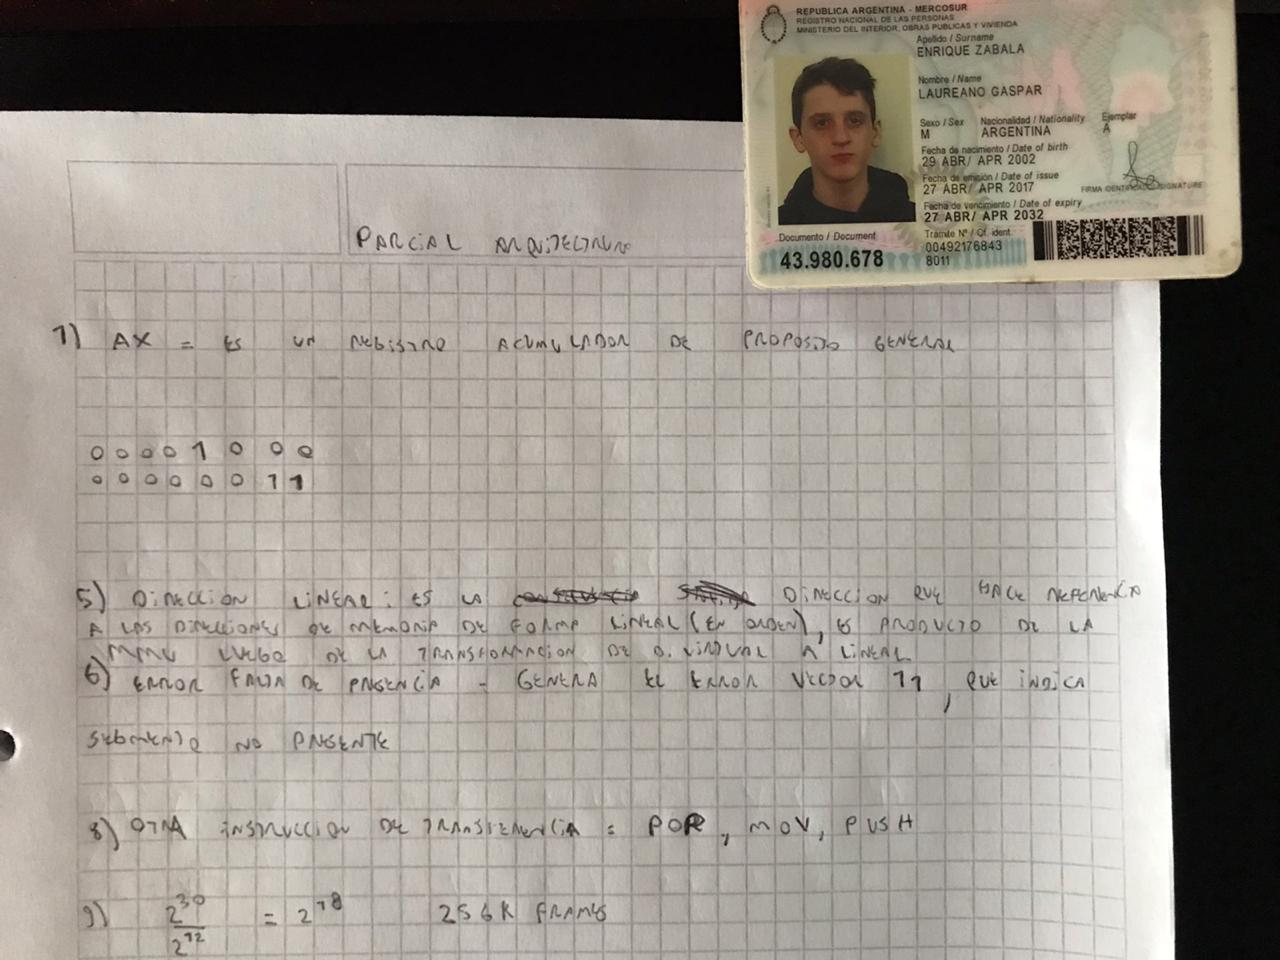 REPUBLICA ARGENTINA - MERCOSUR
REGISTRO NACIONAL DE LAS PERSONAS
MINISTERIO DEL INTERIOR, OBRAS PUBLICAS Y VIVIENDA
Apellido / Surname
ENRIQUE ZABALA
Nombre / Name
LAUREANO GASPAR
Sexo / Sex Nacionalidad / Nationality Ejemplar
M ARGENTINA A
Fecha de nacimiento / Date of birth
29 ABR/ APR 2002
Fecha de emisión / Date of issue
27 ABR/ APR 2017
FIRMA IDENTIFICADO / SIGNATURE
Fecha de vencimiento / Date of expiry
27 ABR/ APR 2032
Documento / Document Trámite Nº / Of. ident.
43.980.678 00492176843
8011
PARCIAL ARQUITECTURA
1) AX = ES UN REGISTRO ACUMULADOR DE PROPOSITO GENERAL
0 0 0 0 1 0 0 0
0 0 0 0 0 0 1 1
5) DIRECCION LINEAL: ES LA DIRECCION QUE HACE REFERENCIA
A LAS DIRECCIONES DE MEMORIA DE FORMA LINEAL (EN ORDEN), ES PRODUCTO DE LA
MMU LUEGO DE LA TRANSFORMACION DE D. VIRTUAL A LINEAL
6) ERROR FALTA DE PRESENCIA - GENERA EL ERROR VECTOR 11, QUE INDICA
SEGMENTO NO PRESENTE
8) OTRA INSTRUCCION DE TRANSFERENCIA = POP, MOV, PUSH
9) 2^30 / 2^12 = 2^18 256K FRAMES